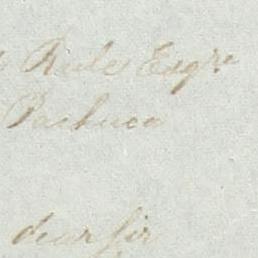 Rule Esqre
Pachuca
dear Sir